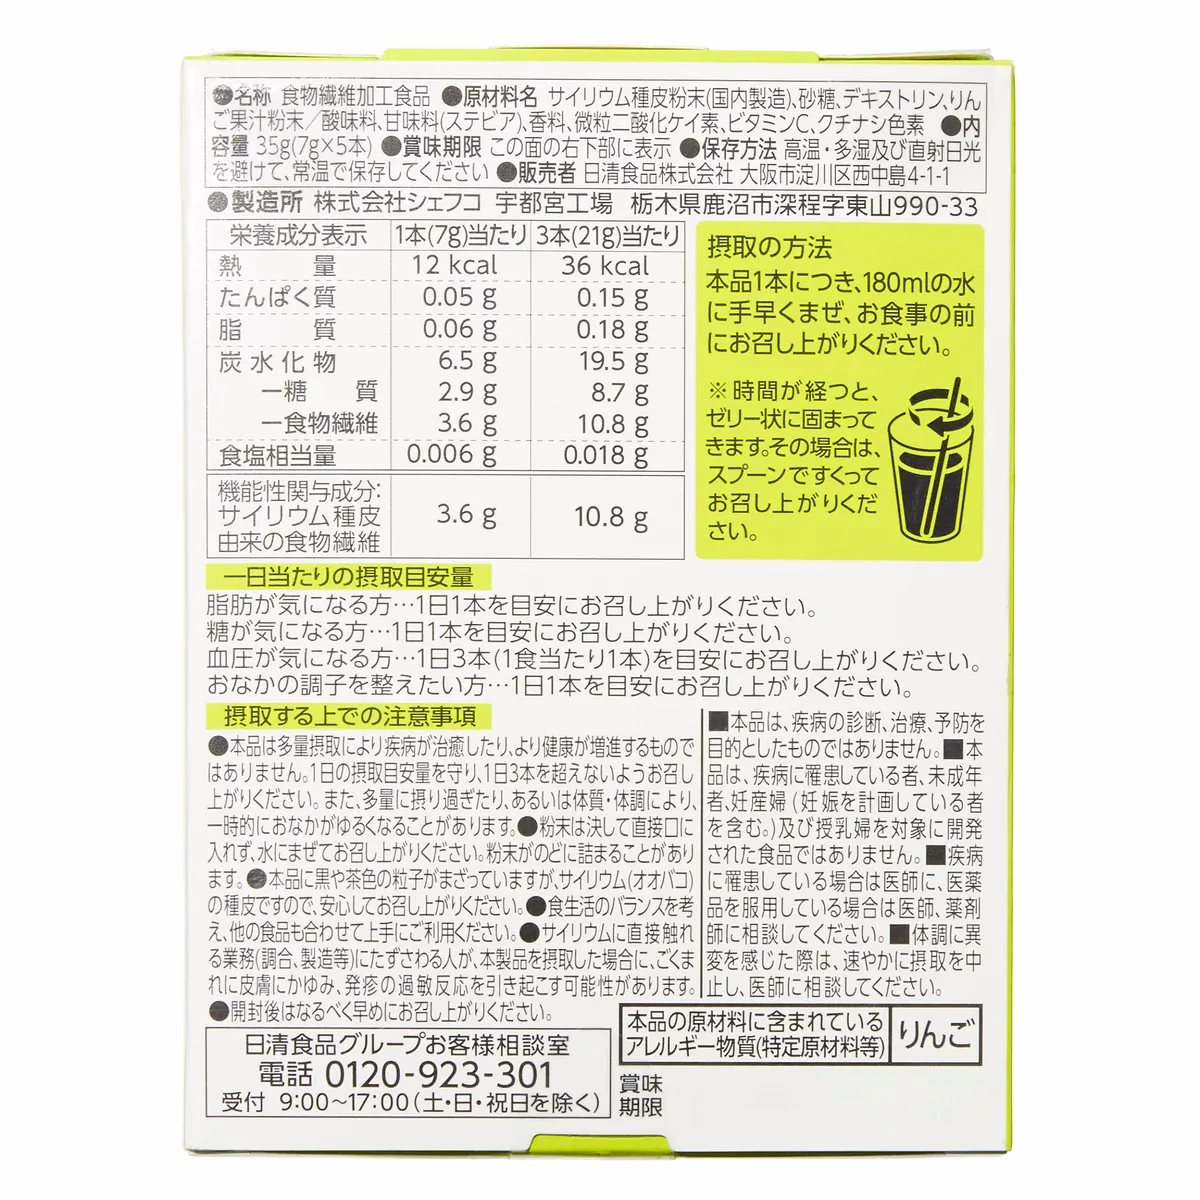 ●名称 食物繊維加工食品 ●原材料名 サイリウム種皮粉末(国内製造)、砂糖、デキストリン、りん
ご果汁粉末／酸味料、甘味料(ステビア)、香料、微粒二酸化ケイ素、ビタミンC、クチナシ色素 ●内
容量 35g(7g×5本) ●賞味期限 この面の右下部に表示 ●保存方法 高温・多湿及び直射日光
を避けて、常温で保存してください ●販売者 日清食品株式会社 大阪市淀川区西中島4-1-1
●製造所 株式会社シェフコ 宇都宮工場 栃木県鹿沼市深程字東山990-33
栄養成分表示 1本(7g)当たり 3本(21g)当たり
熱量 12 kcal 36 kcal
たんぱく質 0.05 g 0.15 g
脂質 0.06 g 0.18 g
炭水化物 6.5 g 19.5 g
―糖質 2.9 g 8.7 g
―食物繊維 3.6 g 10.8 g
食塩相当量 0.006 g 0.018 g
機能性関与成分:
サイリウム種皮 3.6 g 10.8 g
由来の食物繊維
摂取の方法
本品1本につき、180mlの水
に手早くまぜ、お食事の前
にお召し上がりください。
※時間が経つと、
ゼリー状に固まって
きます。その場合は、
スプーンですくって
お召し上がりくだ
さい。
一日当たりの摂取目安量
脂肪が気になる方…1日1本を目安にお召し上がりください。
糖が気になる方…1日1本を目安にお召し上がりください。
血圧が気になる方…1日3本(1食当たり1本)を目安にお召し上がりください。
おなかの調子を整えたい方…1日1本を目安にお召し上がりください。
摂取する上での注意事項
●本品は多量摂取により疾病が治癒したり、より健康が増進するもので
はありません。1日の摂取目安量を守り、1日3本を超えないようお召し
上がりください。また、多量に摂り過ぎたり、あるいは体質・体調により、
一時的におなかがゆるくなることがあります。●粉末は決して直接口に
入れず、水にまぜてお召し上がりください。粉末がのどに詰まることがあり
ます。●本品に黒や茶色の粒子がまざっていますが、サイリウム(オオバコ)
の種皮ですので、安心してお召し上がりください。●食生活のバランスを考
え、他の食品も合わせて上手にご利用ください。●サイリウムに直接触れ
る業務(調合、製造等)にたずさわる人が、本製品を摂取した場合に、ごくま
れに皮膚にかゆみ、発疹の過敏反応を引き起こす可能性があります。
●開封後はなるべく早めにお召し上がりください。
■本品は、疾病の診断、治療、予防を
目的としたものではありません。■本
品は、疾病に罹患している者、未成年
者、妊産婦(妊娠を計画している者
を含む。)及び授乳婦を対象に開発
された食品ではありません。■疾病
に罹患している場合は医師に、医薬
品を服用している場合は医師、薬剤
師に相談してください。■体調に異
変を感じた際は、速やかに摂取を中
止し、医師に相談してください。
日清食品グループお客様相談室
電話 0120-923-301
受付 9:00～17:00(土・日・祝日を除く)
本品の原材料に含まれている
アレルギー物質(特定原材料等)
りんご
賞味
期限